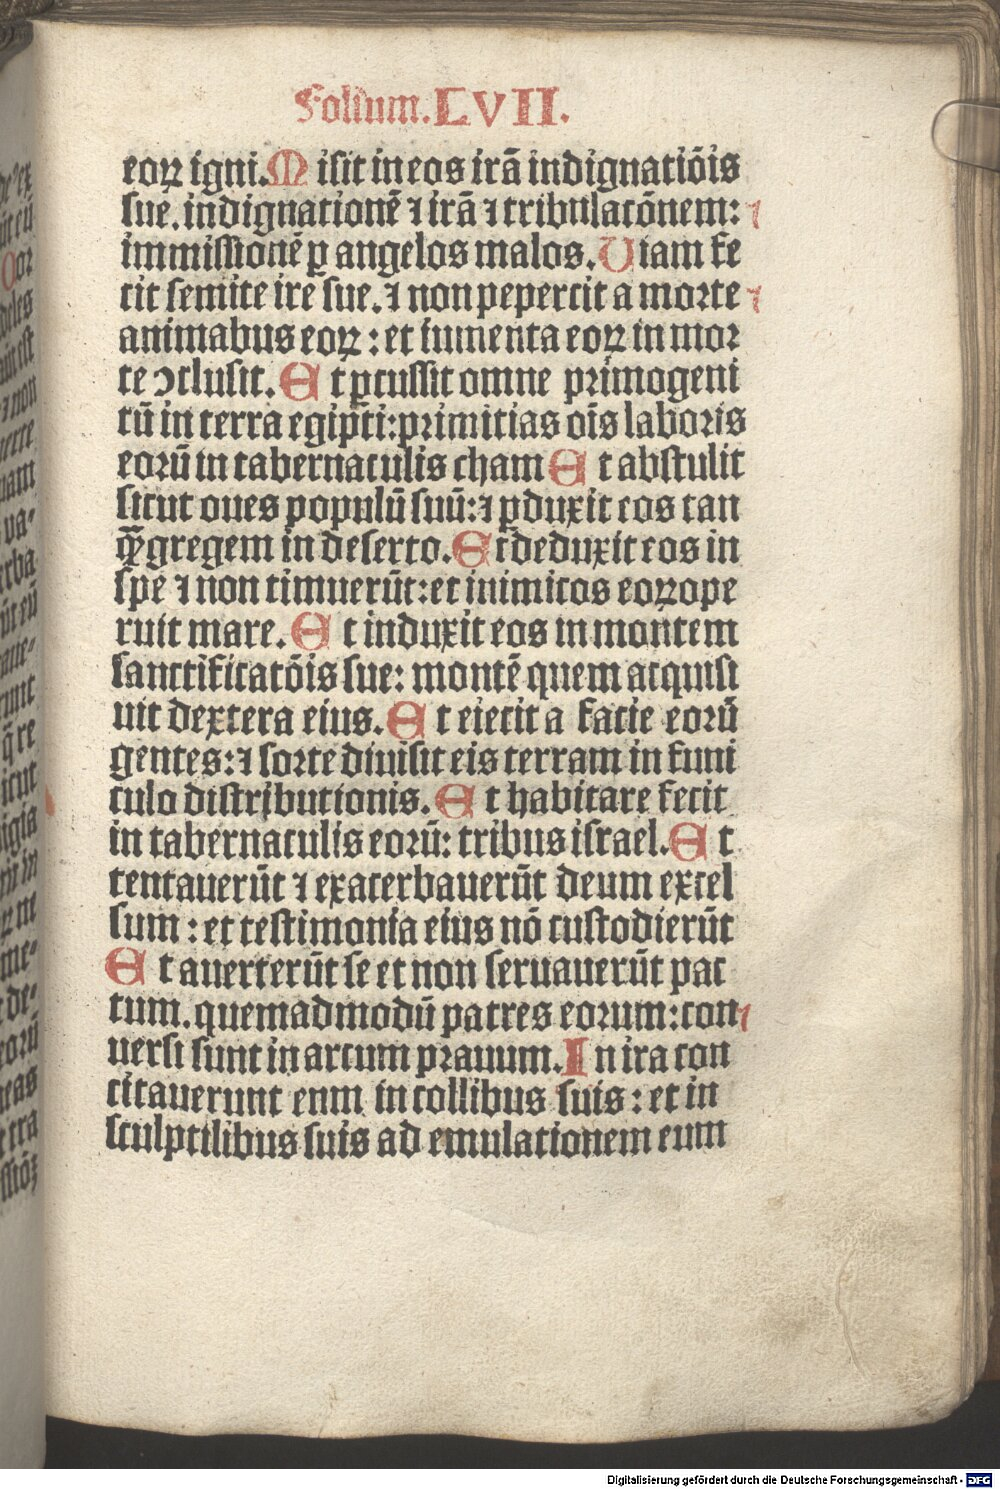 Folium.LVII.
eoꝝ igni.Misit in eos irā indignatiōis
sue.indignationē ⁊ irā ⁊ tribulatōnem:
immissionē ꝑ angelos malos.Uiam fe
cit semite ire sue.⁊ non pepercit a morte
animabus eoꝝ:et iumenta eoꝝ in mor
te ↄclusit.Et ꝑcussit omne primogeni
tū in terra egipti:primitias oīs laboris
eorū in tabernaculis cham Et abstulit
sicut oues populū suū:⁊ ꝑduxit eos tan
ꝙ̄ gregem in deserto.Et deduxit eos in
spe ⁊ non timuerūt:et inimicos eoꝝ ope
ruit mare.Et induxit eos in montem
sanctificatōis sue:montē quem acquisi
uit dextera eius.Et eiecit a facie eorū
gentes:⁊ sorte diuisit eis terram in funi
culo distributionis.Et habitare fecit
in tabernaculis eorū:tribus israel.Et
tentauerūt ⁊ exacerbauerūt deum excel
sum:et testimonia eius nō custodierūt
Et auerterūt se et non seruauerūt pac
tum.quemadmodū patres eorum:con
uersi sunt in arcum prauum.In ira con
citauerunt enm in collibus suis:et in
sculptilibus suis ad emulationem eum
Digitalisierung gefördert durch die Deutsche Forschungsgemeinschaft - DFG